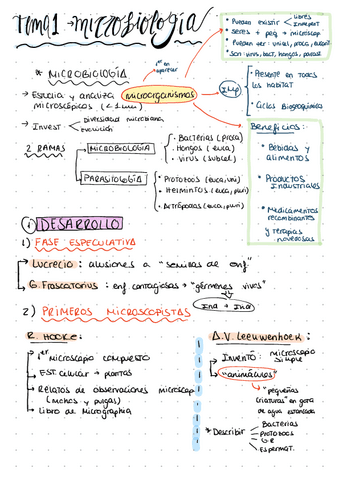 Tema 1 → microbiología
• Pueden existir < libres
interdep
• seres + peq → microscop
• Pueden ser: unicel, proca, eucariot
• son virus, bact, hongos, parasit
1er en aparecer
* MICROBIOLOGÍA
→ Estudia y analiza microorganismos
microscópicos (< 1mm)
→ Invest. < diversidad microbiana
evolución
IMP
• Presente en todos
los habitat
• Ciclos Biogeoquímica
2 RAMAS
MICROBIOLOGÍA
• Bacterias (proca)
• Hongos (euca)
• Virus (subcel)
PARASITOLOGÍA
• Protozoos (euca, uni)
• Helmintos (euca, pluri)
• Artrópodos (euca, pluri)
Beneficios:
• Bebidas y
alimentos
• Productos
Industriales
• Medicamentos
recombinantes
y terapias
novedosas
① DESARROLLO
1) FASE ESPECULATIVA
→ Lucrecio: alusiones a "semillas de enf"
→ G. Frascatorius: enf. contagiosas → "gérmenes vivos"
Ind → Ind
2) PRIMEROS MICROSCOPISTAS
R. HOOKE:
→ 1er microscopio compuesto
→ EST. celular → plantas
→ Relatos de observaciones microscop
(mohos y pulgas)
→ Libro de Micrographia
A.V. Leeuwenhoek:
→ Inventó: microscopio
simple
→ "animáculos"
→ "pequeñas
criaturas" en gota
de agua estancada
* Describir
Bacterias
PROTOZOOS
G.R
ESPERMAT.